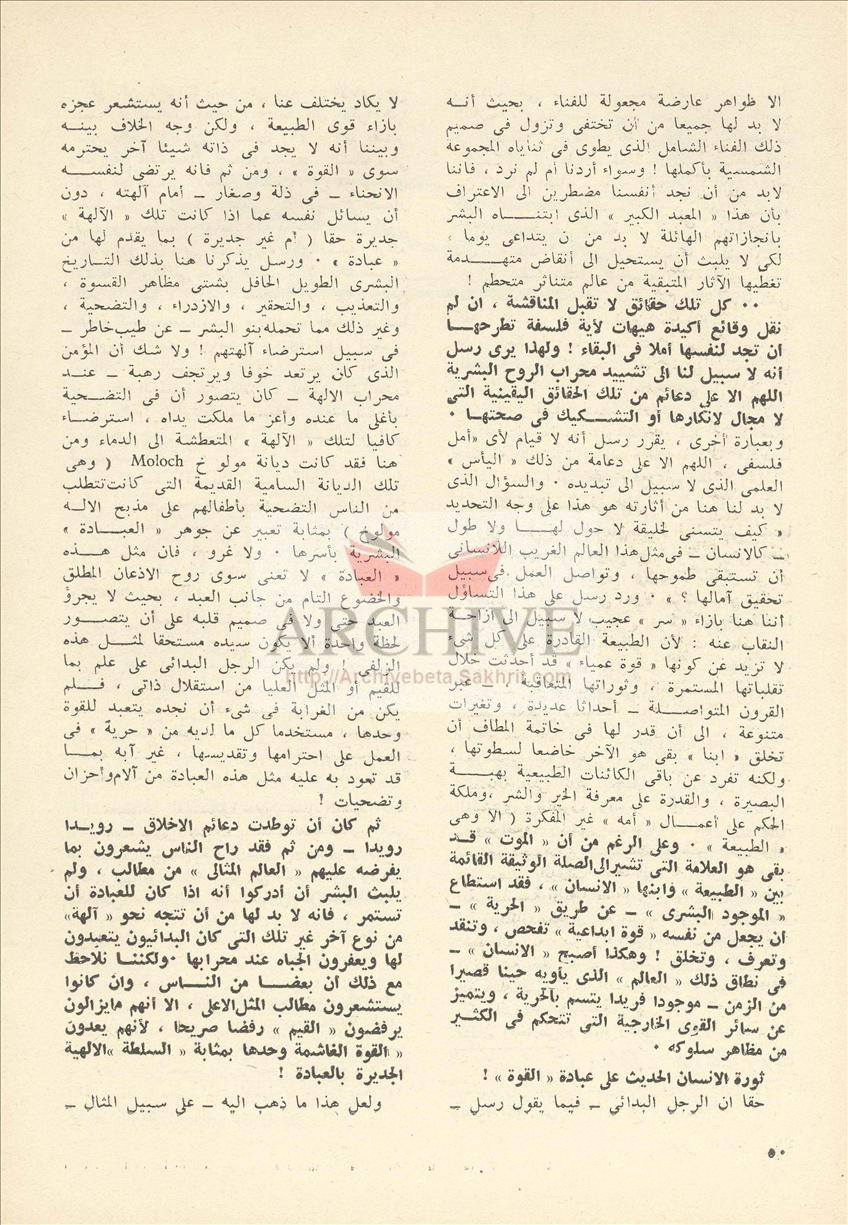 الا ظواهر عارضة مجعولة للفناء ، بحيث أنه
لا بد لها جميعا من أن تختفى وتزول فى صميم
ذلك الفناء الشامل الذى يطوى فى ثناياه المجموعة
الشمسية بأكملها ! وسواء أردنا أم لم نرد ، فاننا
لابد من أن نجد أنفسنا مضطرين الى الاعتراف
بأن هذا « المعبد الكبير » الذى ابتناه البشر
بانجازاتهم الهائلة لا بد من ن يتداعى يوما ،
لكى لا يلبث أن يستحيل الى أنقاض متهدمة
تغطيها الآثار المتبقية من عالم متناثر متحطم !
٠٠ كل تلك حقائق لا تقبل المناقشة ، ان لم
نقل وقائع أكيدة هيهات لأية فلسفة تطرحها
أن تجد لنفسها أملا فى البقاء ! ولهذا يرى رسل
أنه لا سبيل لنا الى تشييد محراب الروح البشرية
اللهم الا على دعائم من تلك الحقائق اليقينية التى
لا مجال لانكارها أو التشكيك فى صحتها ٠
وبعبارة أخرى ، يقرر رسل أنه لا قيام لأى «أمل
فلسفى ، اللهم الا على دعامة من ذلك « اليأس »
العلمى الذى لا سبيل الى تبديده ٠ والسؤال الذى
لا بد لنا هنا من أثارته هو هذا على وجه التحديد
« كيف يتسنى لخليقة لا حول لها ولا طول
ـ كالانسان ـ فى مثل هذا العالم الغريب اللانسانى
أن تستبقى طموحها ، وتواصل العمل فى سبيل
تحقيق آمالها ؟ » ٠ ورد رسل على هذا التساؤل
أننا هنا بازاء « سر » عجيب لا سبيل الى ازاحة
النقاب عنه : لأن الطبيعة القادرة على كل شىء
لا تزيد عن كونها « قوة عمياء » قد أحدثت خلال
تقلباتها المستمرة ، وثوراتها المتعاقبة ـ عبر
القرون المتواصلة ـ أحداثا عديدة ، وتغيرات
متنوعة ، الى أن قدر لها فى خاتمة المطاف أن
تخلق « ابنا » بقى هو الآخر خاضعا لسطوتها ،
ولكنه تفرد عن باقى الكائنات الطبيعية بهبة
البصيرة ، والقدرة على معرفة الخير والشر ،وملكة
الحكم على أعمال « أمه » غير المفكرة ( الا وهى
« الطبيعة » ٠ وعلى الرغم من أن « الموت » قد
بقى هو العلامة التى تشير الى الصلة الوثيقة القائمة
بين « الطبيعة » وابنها « الانسان » ، فقد استطاع
« الموجود البشرى » ـ عن طريق « الحرية » ـ
أن يجعل من نفسه « قوة ابداعية » تفحص ، وتنقد
وتعرف ، وتخلق ! وهكذا أصبح « الانسان » ـ
فى نطاق ذلك « العالم » الذى يأويه حينا قصيرا
من الزمن ـ موجودا فريدا يتسم بالحرية ، ويتميز
عن سائر القوى الخارجية التى تتحكم فى الكثير
من مظاهر سلوكه ٠
ثورة الانسان الحديث على عبادة « القوة » !
حقا ان الرجل البدائى ـ فيما يقول رسل ـ
لا يكاد يختلف عنا ، من حيث أنه يستشعر عجزه
بازاء قوى الطبيعة ، ولكن وجه الخلاف بينه
وبيننا أنه لا يجد فى ذاته شيئا آخر يحترمه
سوى « القوة » ، ومن ثم فانه يرتضى لنفسه
الانحناء ـ فى ذلة وصغار ـ أمام آلهته ، دون
أن يسائل نفسه عما اذا كانت تلك « الآلهة »
جديرة حقا ( أم غير جديرة ) بما يقدم لها من
« عبادة » ٠ ورسل يذكرنا هنا بذلك التاريخ
البشرى الطويل الحافل بشتى مظاهر القسوة ،
والتعذيب ، والتحقير ، والازدراء ، والتضحية ،
وغير ذلك مما تحمله بنو البشر ـ عن طيب خاطر ـ
فى سبيل استرضاء آلهتهم ! ولا شك أن المؤمن
الذى كان يرتعد خوفا ويرتجف رهبة ـ عند
محراب الالهة ـ كان يتصور أن فى التضحية
بأغلى ما عنده وأعز ما ملكت يداه ، استرضاء
كافيا لتلك « الآلهة » المتعطشة الى الدماء ومن
هنا فقد كانت ديانة مولو خ Moloch ( وهى
تلك الديانة السامية القديمة التى كانت تتطلب
من الناس التضحية بأطفالهم على مذبح الاله
مولوخ ) بمثابة تعبير عن جوهر « العبادة »
البشرية بأسرها ٠ ولا غرو ، فان مثل هذه
« العبادة » لا تعنى سوى روح الاذعان المطلق
والخضوع التام من جانب العبد ، بحيث لا يجرؤ
العبد حتى ولا فى صميم قلبه على أن يتصور
لحظة واحدة ألا يكون سيده مستحقا لمثل هذه
الزلفى ! ولم يكن الرجل البدائى على علم بما
للقيم أو المثل العليا من استقلال ذاتى ، فلم
يكن من الغرابة فى شىء أن نجده يتعبد للقوة
وحدها ، مستخدما كل ما لديه من « حرية » فى
العمل على احترامها وتقديسها ، غير آبه بما
قد تعود به عليه مثل هذه العبادة من آلام وأحزان
وتضحيات !
ثم كان أن توطدت دعائم الاخلاق ـ رويدا
رويدا ـ ومن ثم فقد راح الناس يشعرون بما
يفرضه عليهم « العالم المثالى » من مطالب ، ولم
يلبث البشر أن أدركوا أنه اذا كان للعبادة أن
تستمر ، فانه لا بد لها من أن تتجه نحو « آلهة»
من نوع آخر غير تلك التى كان البدائيون يتعبدون
لها ويعفرون الجباه عند محرابها ٠ ولكننا نلاحظ
مع ذلك أن بعضا من الناس ، وان كانوا
يستشعرون مطالب المثل الاعلى ، الا أنهم مايزالون
يرفضون « القيم » رفضا صريحا ، لأنهم يعدون
« القوة الغاشمة وحدها بمثابة « السلطة » الالهية
الجديرة بالعبادة !
ولعل هذا ما ذهب اليه ـ على سبيل المثال ـ
ARCHIVE
http://Archivebeta.Sakhrit.com
٥٠